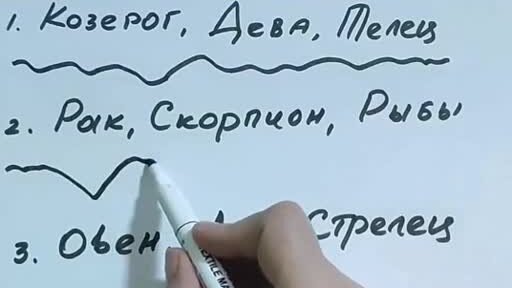 1. Козерог, Дева, Телец
2. Рак, Скорпион, Рыбы
3. Овен Стрелец